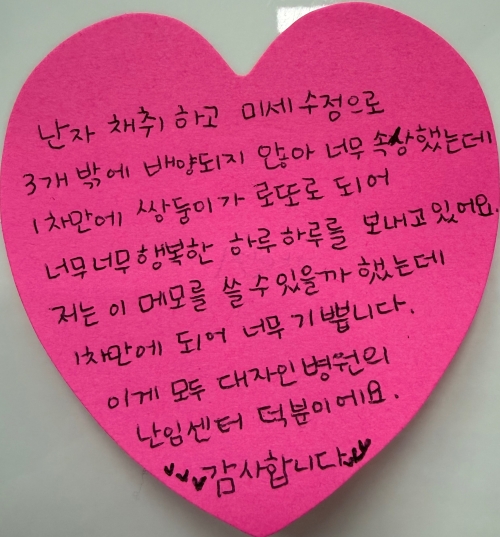 난자 채취 하고 미세수정으로
3개 밖에 배양되지 않아 너무 속상했는데
1차만에 쌍둥이가 로또로 되어
너무너무행복한 하루하루를 보내고있어요.
저는 이 메모를 쓸 수 있을까 했는데
1차만에 되어 너무 기쁩니다.
이게 모두 대자인병원의
난임센터 덕분이에요.
감사합니다